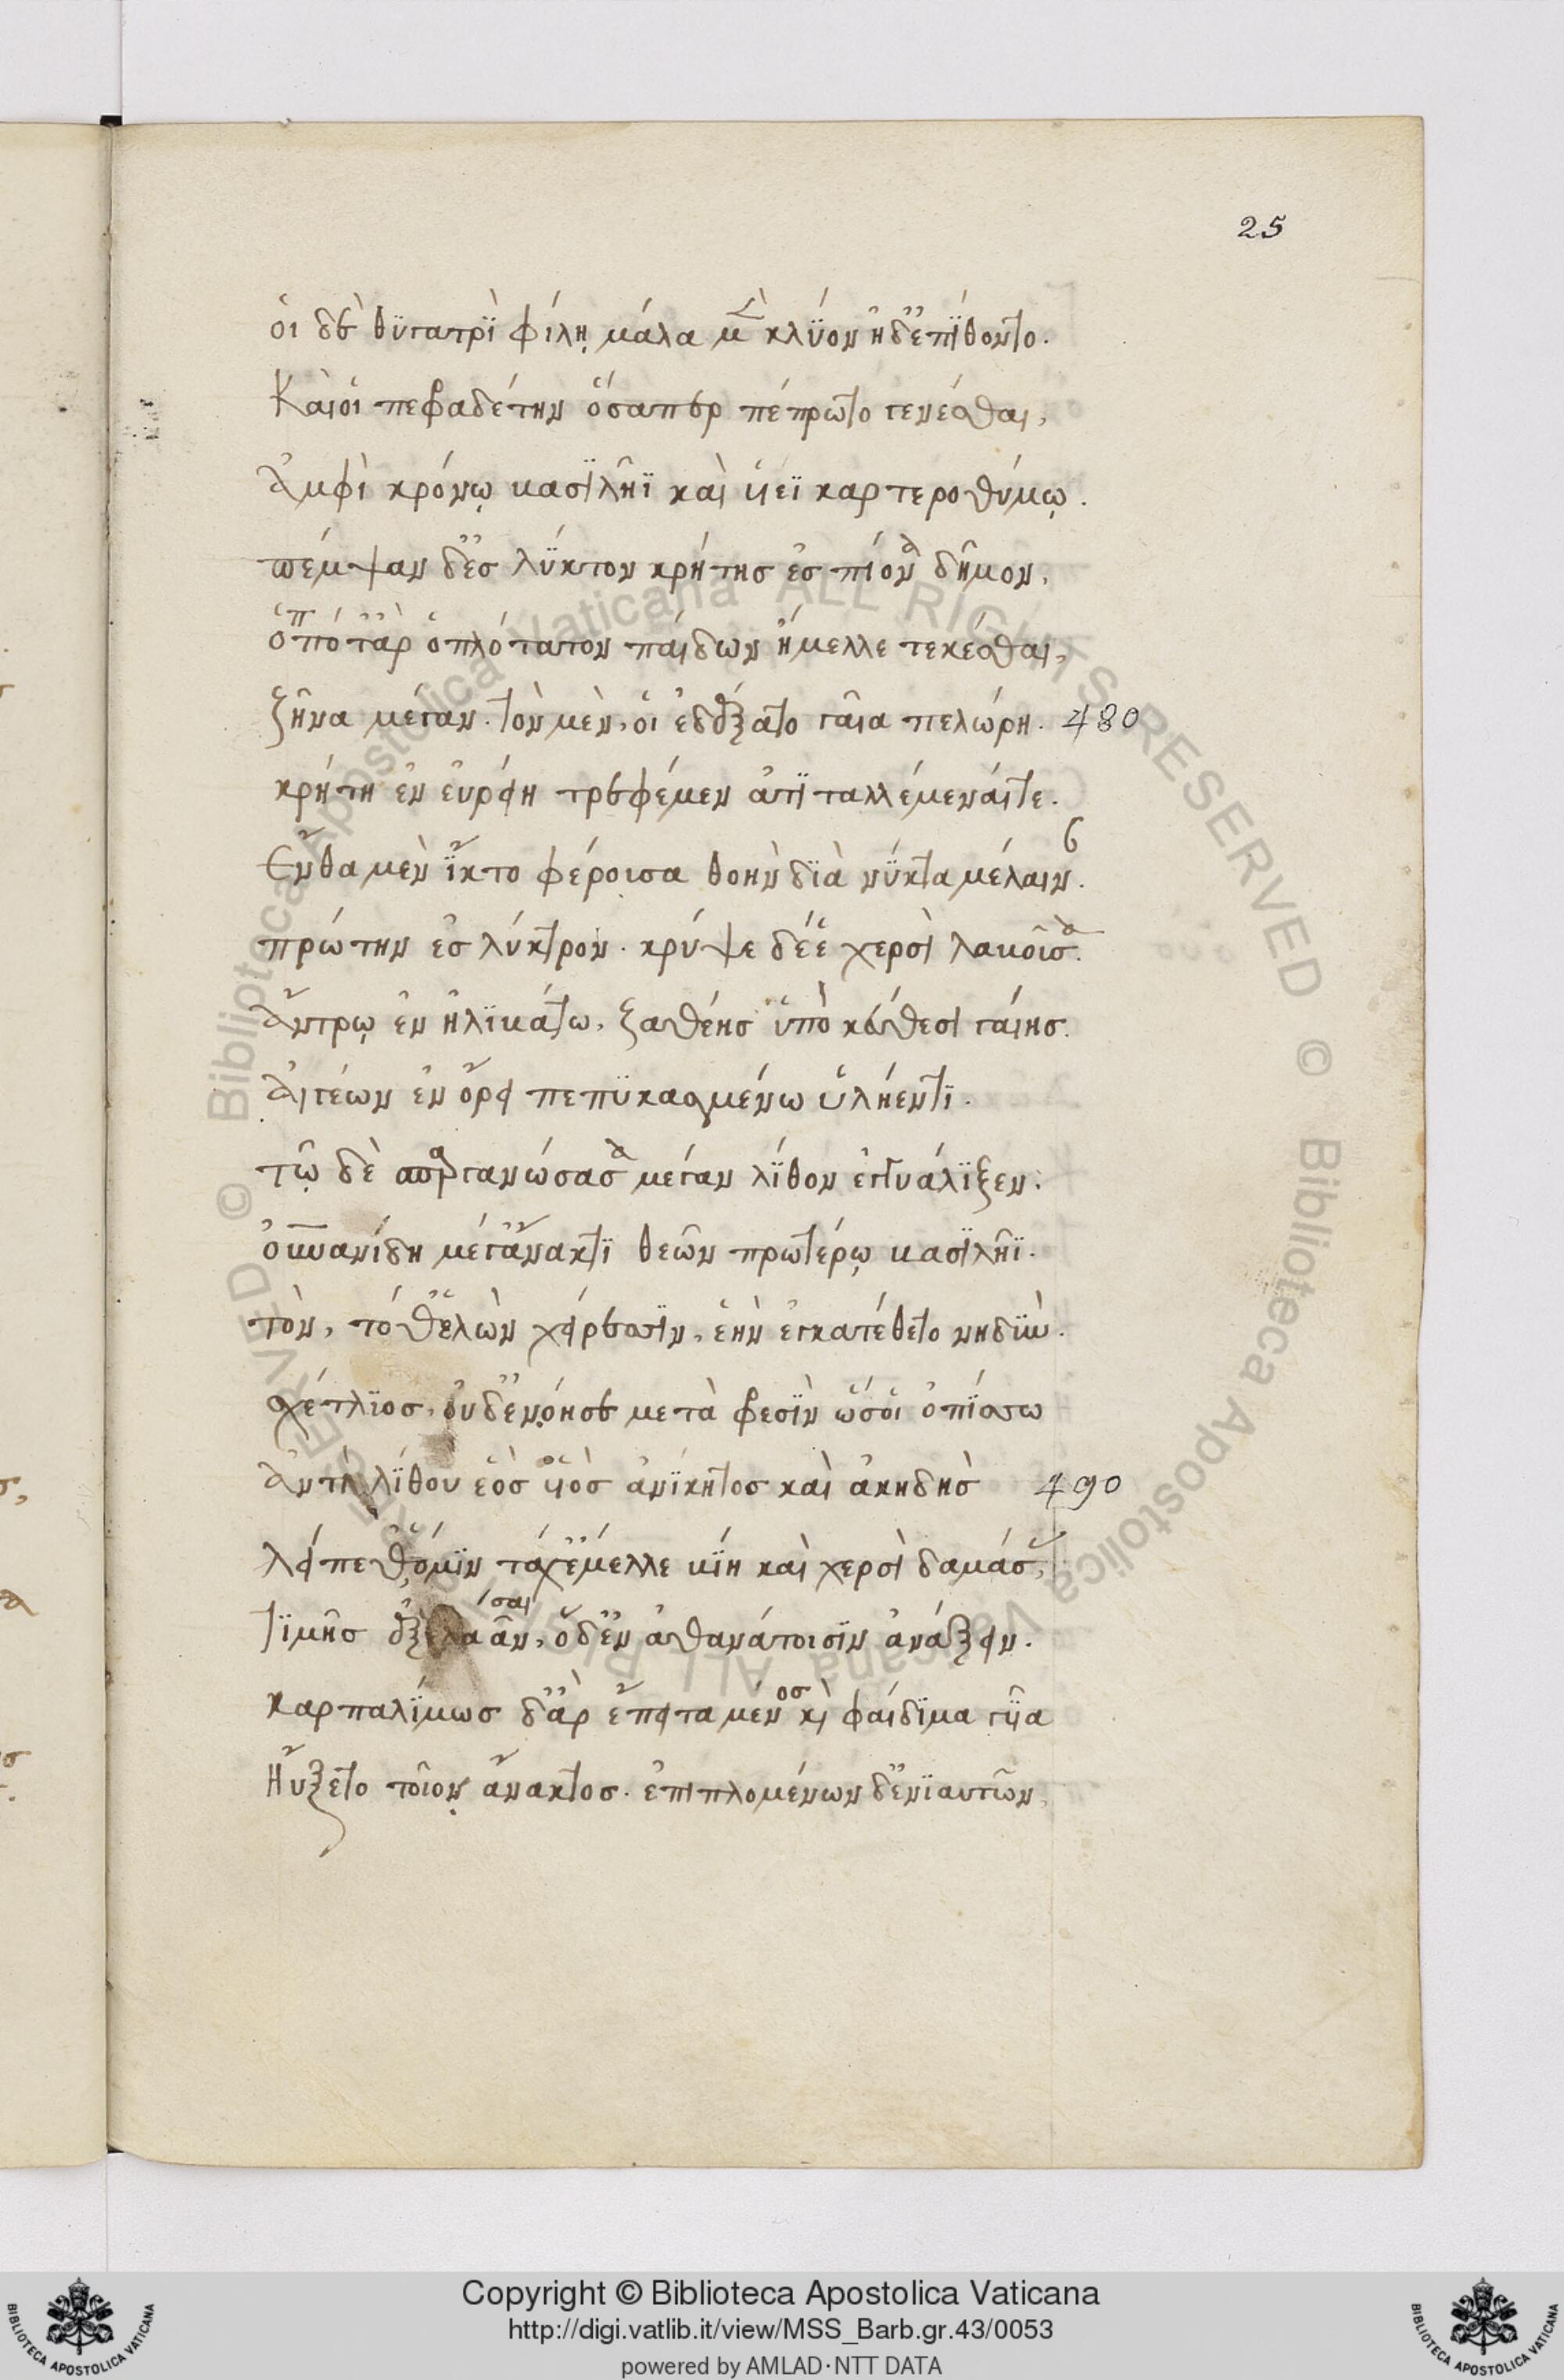 25
οἱ δὲ θυγατρὶ φίλῃ μάλα μὲν κλύον ἠδ' ἐπίθοντο.
Καί οἱ πεφραδέτην ὅσα περ πέπρωτο γενέσθαι,
Ἀμφὶ κρόνῳ βασιλῆϊ καὶ υἱέϊ καρτεροθύμῳ.
πέμψαν δ' ἐς λύκτον κρήτης ἐς πίονα δῆμον,
ὁππότ' ἂρ ὁπλότατον παίδων ἤμελλε τεκέσθαι,
ζῆνα μέγαν. τὸν μὲν, οἱ ἐδέξατο γαῖα πελώρη. 480
κρήτη ἐν εὐρείη τρεφέμεν ἀτιταλλέμεναί τε.
Ἔνθα μὲν ἷκτο φέροισα θοὴν διὰ νύκτα μέλαιναν.
πρώτην ἐς λύκτρον. κρύψε δέ ἑ χερσὶ λαβοῖσα.
Ἄντρῳ ἐν ἠλιβάτω, ζαθέης ὑπὸ κεύθεσι γαίης.
Αἰγέων ἐν ὄρει πεπυκασμένω ὑλήεντι.
τῷ δὲ σπαργανώσασα μέγαν λίθον ἐγγυάλιξεν.
οὐρανίδη μέγ' ἄνακτι θεῶν προτέρῳ βασιλῆϊ.
τὸν, τόθ' ἑλὼν χείρεσσιν, ἑὴν ἐγκατέθετο νηδύν.
σχέτλιος, οὐδ' ἐνόησε μετὰ φρεσὶν ὥς οἱ ὀπίσσω
Ἀντὶ λίθου ἑὸς υἱὸς ἀνίκητος καὶ ἀκηδὴς 490
λείπεθ' ὅ μιν τάχ' ἔμελλε βίη καὶ χερσὶ δαμάσας,
τιμῆς ἐξελάαν, ὃ δ' ἐν ἀθανάτοισιν ἀνάξειν.
σαι
καρπαλίμως δ' ἂρ ἔπειτα μένος καὶ φαίδιμα γυῖα
Ηὔξετο τοῖον ἄνακτος. ἐπιπλομένων δ' ἐνιαυτῶν,
Copyright © Biblioteca Apostolica Vaticana
http://digi.vatlib.it/view/MSS_Barb.gr.43/0053
powered by AMLAD·NTT DATA